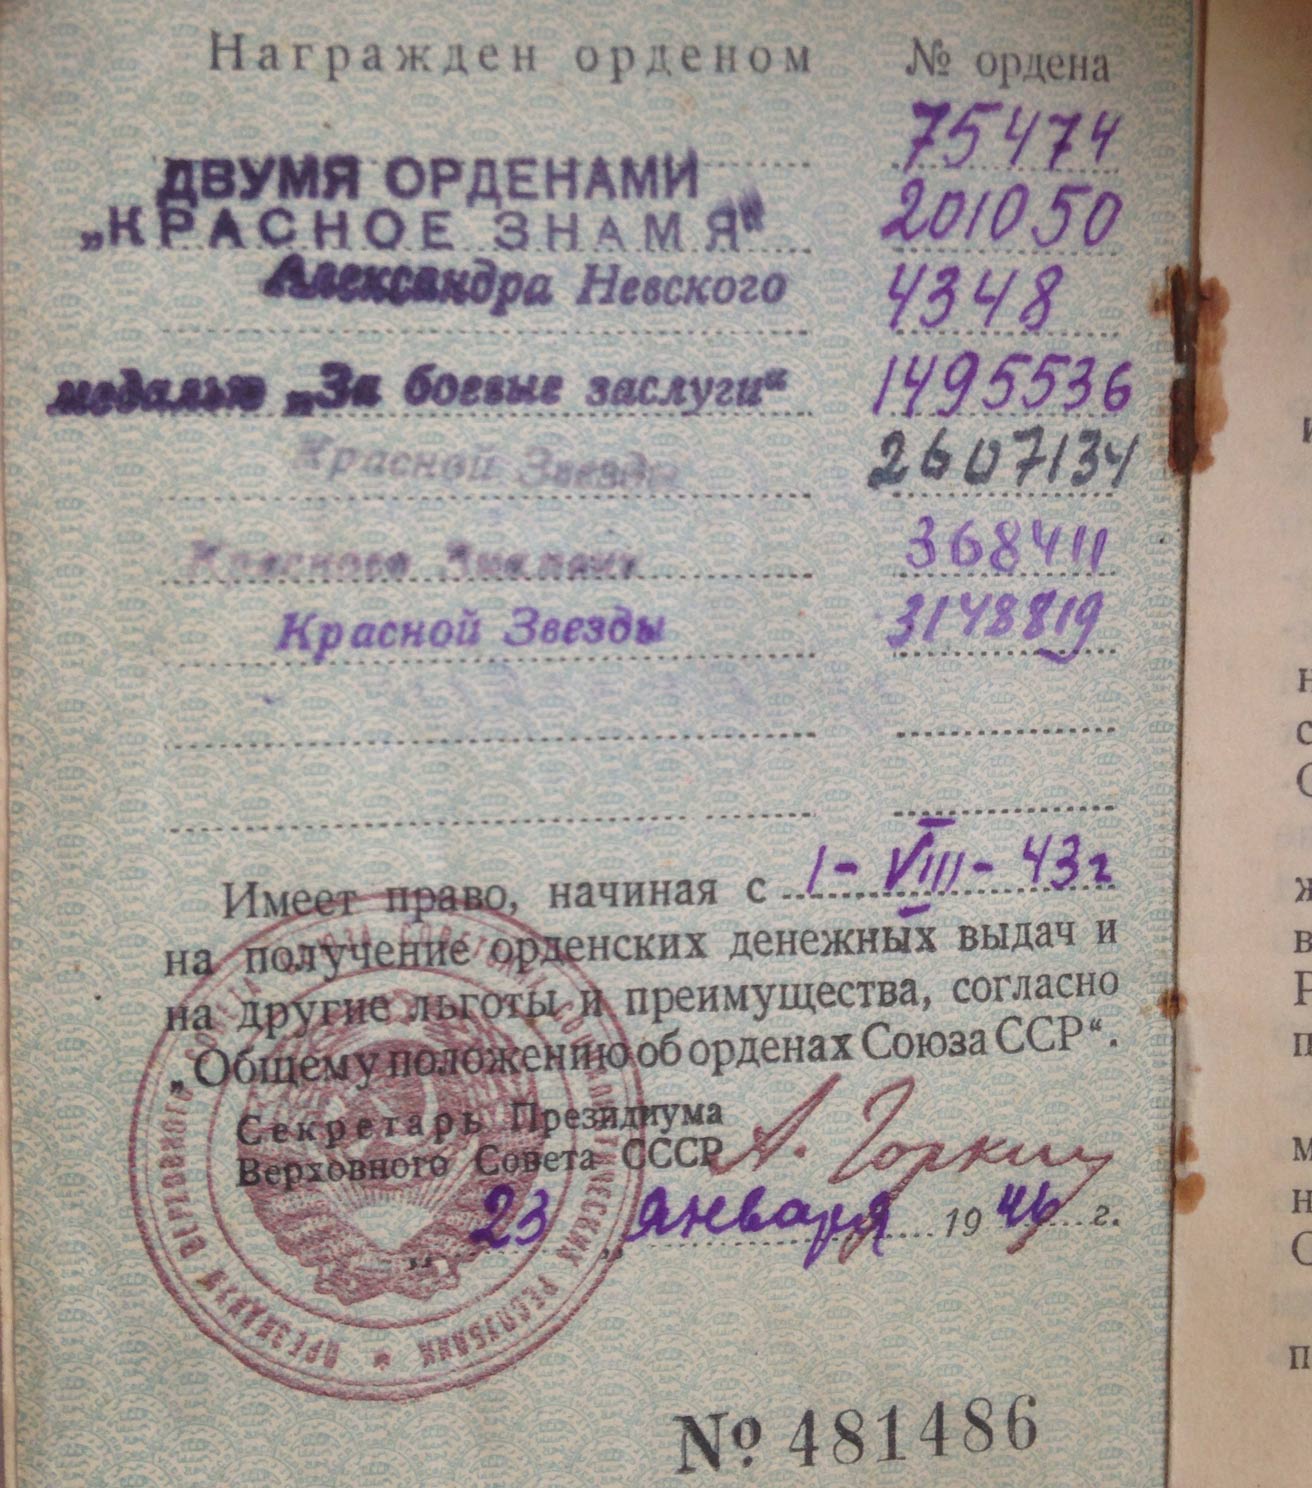 Награжден орденом № ордена
75474
ДВУМЯ ОРДЕНАМИ
„КРАСНОЕ ЗНАМЯ“ 201050
Александра Невского 4348
медалью „За боевые заслуги“ 1495536
Красной Звезды 2607134
Красного Знамени 368411
Красной Звезды 3148819
Имеет право, начиная с 1-VIII-43г
на получение орденских денежных выдач и
на другие льготы и преимущества, согласно
„Общему положению об орденах Союза ССР“.
Секретарь Президиума
Верховного Совета СССР А. Горкин
„23„ января 1946 г.
ПРЕЗИДИУМ ВЕРХОВНОГО СОВЕТА СОЮЗА СОВЕТСКИХ СОЦИАЛИСТИЧЕСКИХ РЕСПУБЛИК *
№ 481486